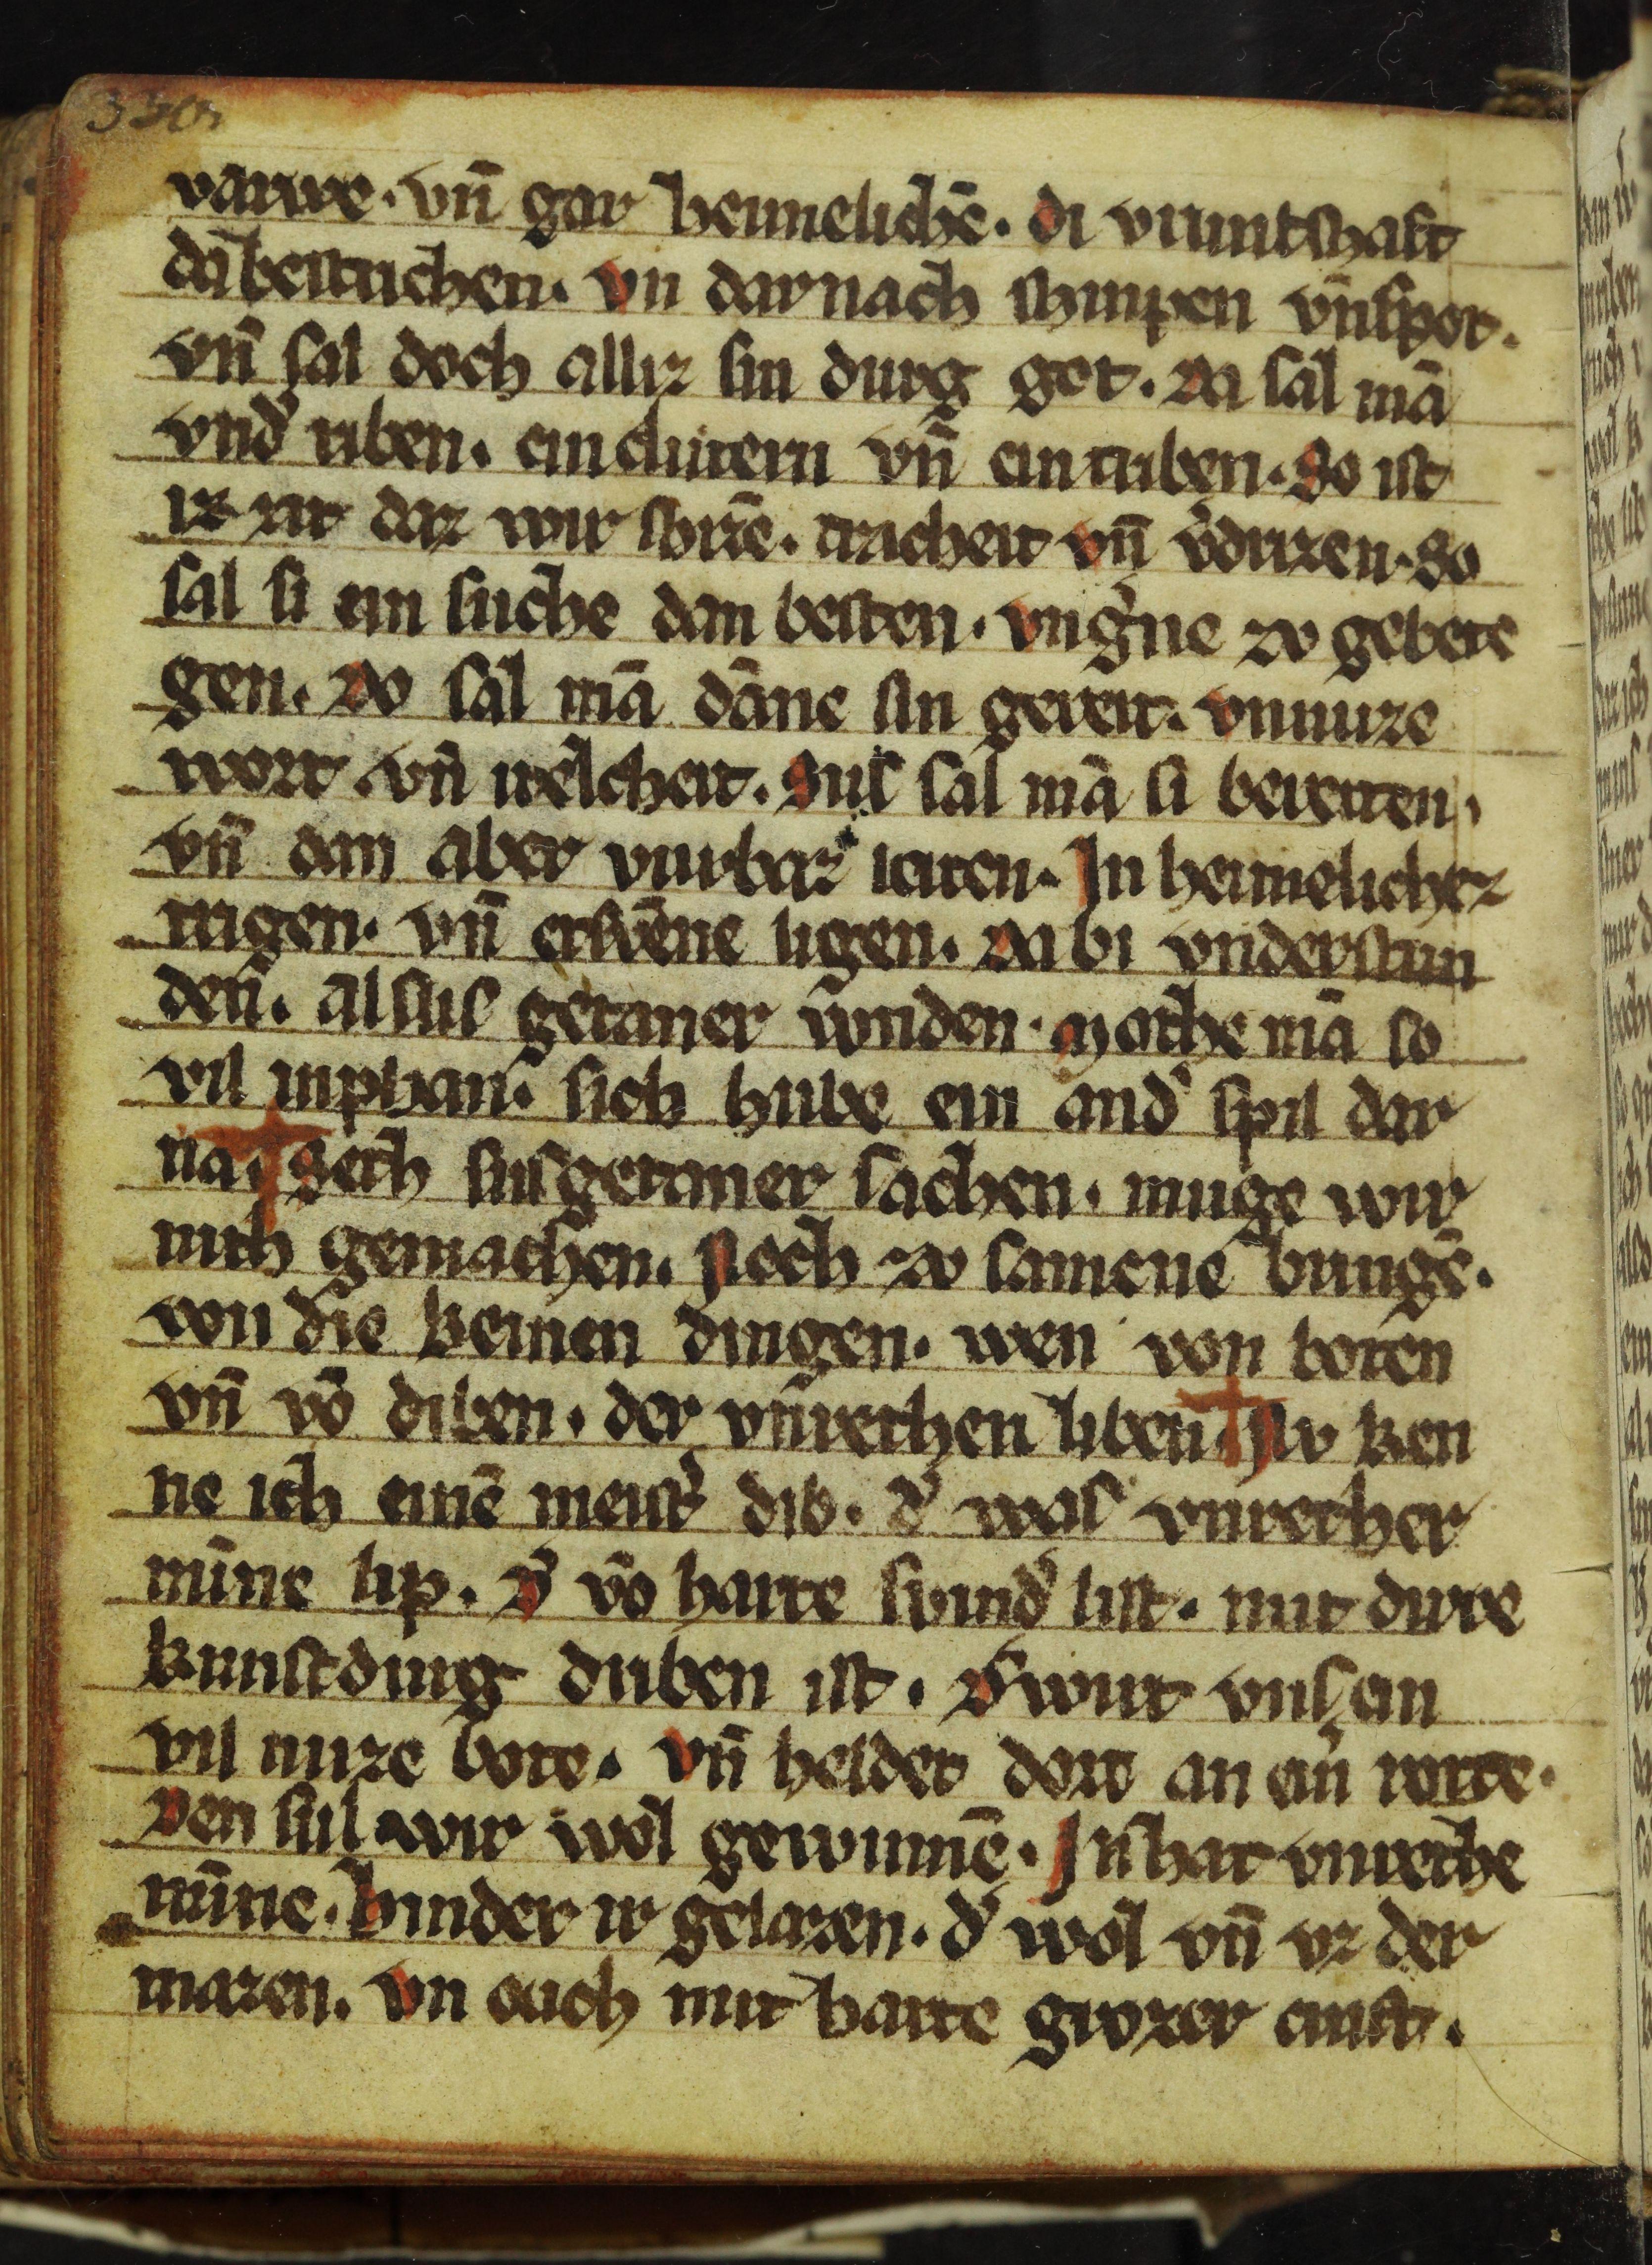 330.
varwe. vn̄ gar heimelichē. di vruntshaft
da bestrichen. vn darnach shinpen vn̄ spot.
vn̄ sal doch alliz sin durg got. Da sal mā
vnd' riben. ein chitern vn̄ ein triben. So ist
iz zit daz wir shrē. tracheit vn̄ v'drizen. So
sal si ein suche dan besten. vng'ne zv gebete
gen. Do sal mā dāne sin gereit. vnnuze
wort. vn̄ itelcheit. Sus sal mā si bereiten.
vn̄ dan aber vurbaz leiten. In heimelicher
trigen. vn̄ erwēne ligen. Da bi vnderstun
den. alsus getaner wnden. Mothe mā so
vil inphan. sich hube ein and' spil dar
na. Seth susgetaner sachen. muge wir
nith gemachen. Noch zv samene bringē.
von die keinen dingen. wen von boten
vn̄ vō diben. der vnrethen liben. Nv ken
ne ich einē meist' dib. d' was vnrether
mīne lip. D' vō harte swind' list. mit divre
kunst ding duben ist. D' wirt vns ein
vil nuze bote. vn̄ heldet dort an ein' rotte.
Den sul wir wol gewinnē. In hat vnrethe
mīne. hinder ir gelazen. d' wol vn̄ vz der
mazen. vn ouch mit harte grozer cunst.